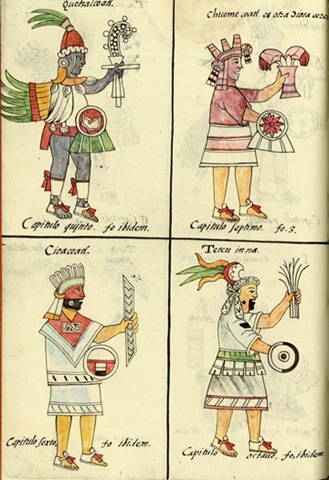 Quetzalcoatl.
Chicome coatl. es otra Diosa ceres
Capitulo quinto. fo ibidem.
Capitulo septimo. fo. 3.
Cioacoatl.
Teteu inna.
Capitulo sexto, fo ibidem.
Capitulo octavo, fo, ibidem.